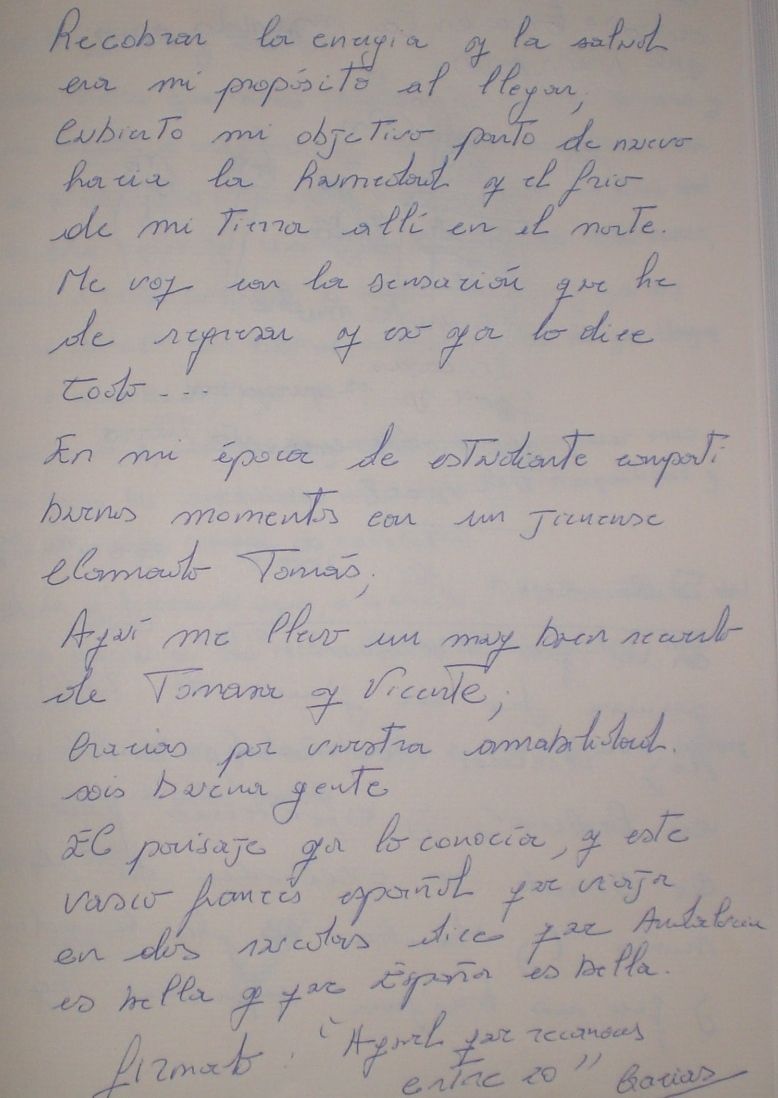 Recobrar la energia y la salud
era mi propósito al llegar,
Cubierto mi objetivo parto de nuevo
hacia la humedad y el frio
de mi tierra allí en el norte.
Me voy con la sensación que he
de regresar y eso ya lo dice
todo ---
En mi época de estudiante comparti
buenos momentos con un jienense
llamado Tomás;
Aquí me llevo un muy buen recuerdo
de Tomasa y Vicente;
Gracias por vuestra amabilidad.
sois buena gente
El paisaje ya lo conocía, y este
vasco francés español que viaja
en dos ruedas dice que Andalucia
es bella y que España es bella.
firmado : "Aquel que reconoces
entre 20" Gracias